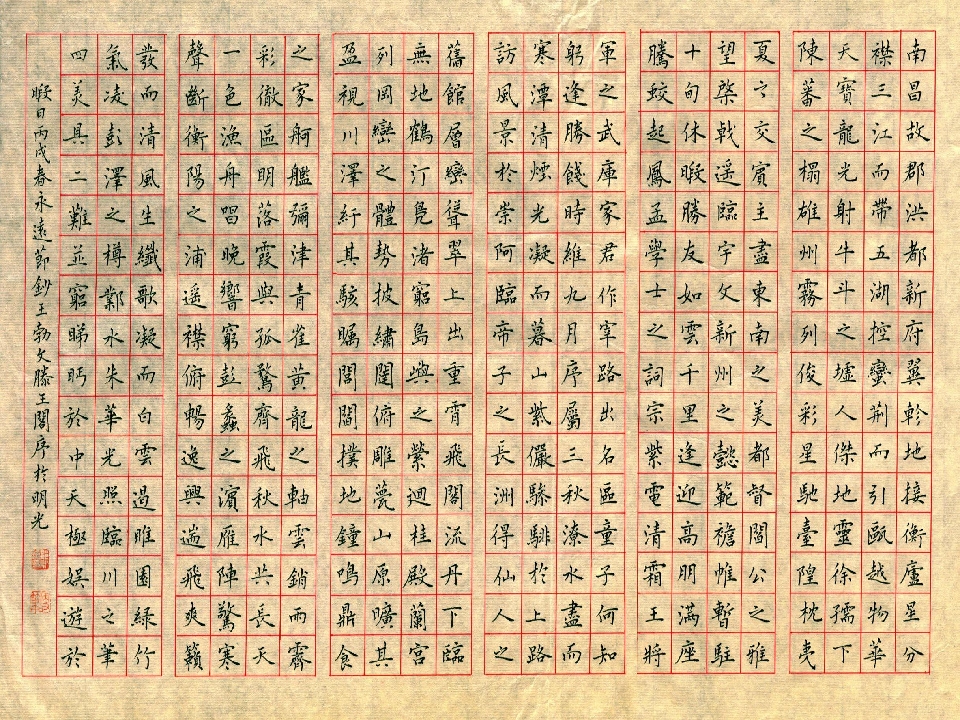 南昌故郡洪都新府翼軫地接衡廬星分
襟三江而帶五湖控蠻荊而引甌越物華
天寶龍光射牛斗之墟人傑地靈徐孺下
陳蕃之榻雄州霧列俊彩星馳臺隍枕夷
夏之交賓主盡東南之美都督閻公之雅
望棨戟遥臨宇文新州之懿範襜帷暫駐
十旬休暇勝友如雲千里逢迎高朋滿座
騰蛟起鳳孟學士之詞宗紫電清霜王將
軍之武庫家君作宰路出名區童子何知
躬逢勝餞時維九月序屬三秋潦水盡而
寒潭清煙光凝而暮山紫儼驂騑於上路
訪風景於崇阿臨帝子之長洲得仙人之
舊館層巒聳翠上出重霄飛閣流丹下臨
無地鶴汀鳧渚窮島嶼之縈迴桂殿蘭宮
列岡巒之體勢披繡闥俯雕甍山原曠其
盈視川澤紆其駭矚閭閻撲地鐘鳴鼎食
之家舸艦彌津青雀黃龍之軸雲銷雨霽
彩徹區明落霞與孤鶩齊飛秋水共長天
一色漁舟唱晚響窮彭蠡之濱雁陣驚寒
聲斷衡陽之浦遥襟俯暢逸興遄飛爽籟
發而清風生纖歌凝而白雲遏睢園綠竹
氣凌彭澤之樽鄴水朱華光照臨川之筆
四美具二難並窮睇眄於中天極娛遊於
暇日丙戌春永遠節鈔王勃文滕王閣序於明光